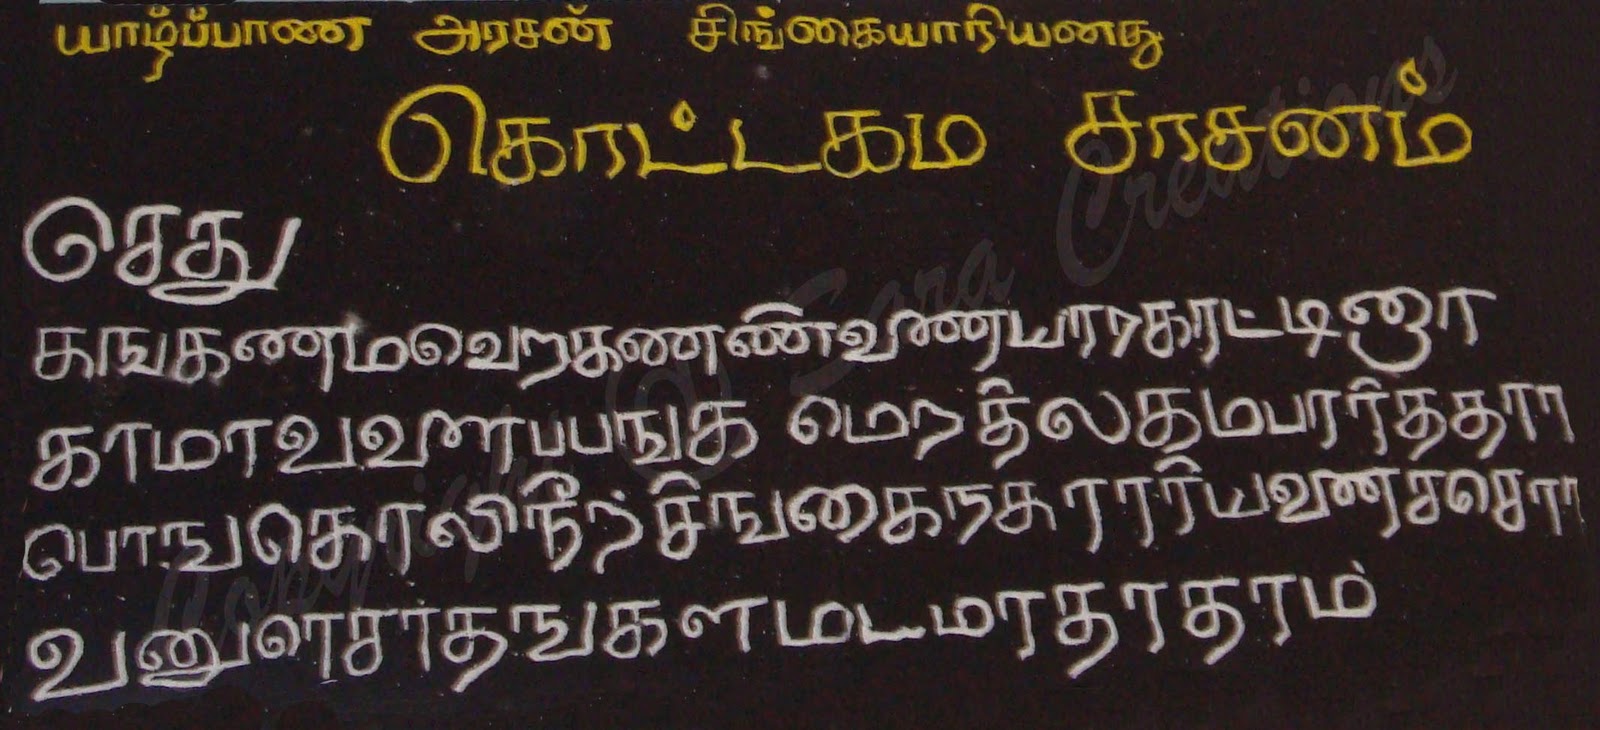 யாழ்ப்பாண அரசன் சிங்கையாரியனது
கொட்டகம சாசனம்
சேது
கஙகணமவெறகணணிணையாரகாட்டினா
காமாவளைபபஙக மெறதிலதமபாரதததா
பொஙகொலிநீர்சிஙகைநகராரியனைசசொ
வனுளசாதஙகளமடமாதராதாம்
Copyright @ Sara Creations